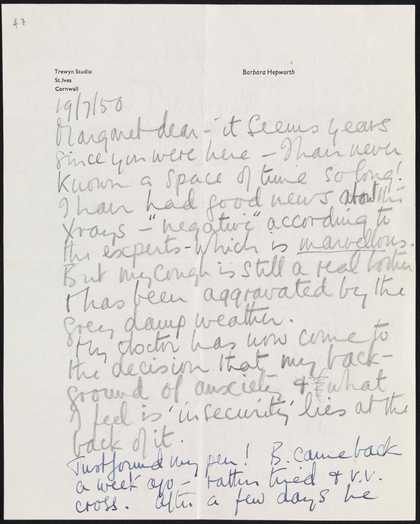 47
Trewyn Studio
St. Ives
Cornwall
Barbara Hepworth
19/7/50
Margaret dear – it seems years
since you were here – I have never
known a space of time so long!
I have had good news about the
Xrays – "negative" according to
the experts – which is marvellous.
But my cough is still a real bother
& has been aggravated by the
grey damp weather.
My doctor has now come to
the decision that my back-
ground of anxiety & what
I feel is 'insecurity' lies at the
back of it.
Just found my pen! B. came back
a week ago – rather tired & v.v.
cross. After a few days he